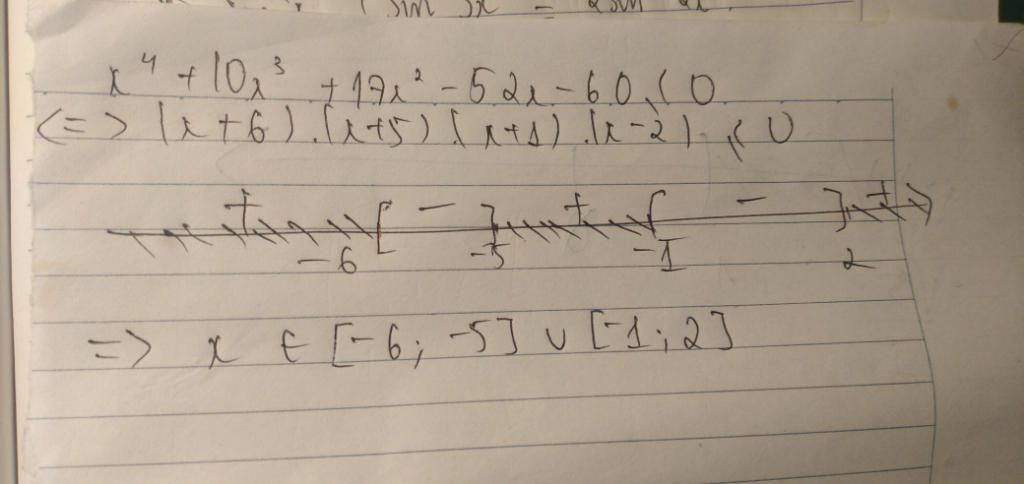 x⁴ + 10x³ + 17x² - 52x - 60 ≤ 0
<=> (x+6).(x+5)(x+1).(x-2) ≤ 0
+ [ - ] + [ - ] +
-6 -5 -1 2
=> x ∈ [-6; -5] ∪ [-1; 2]